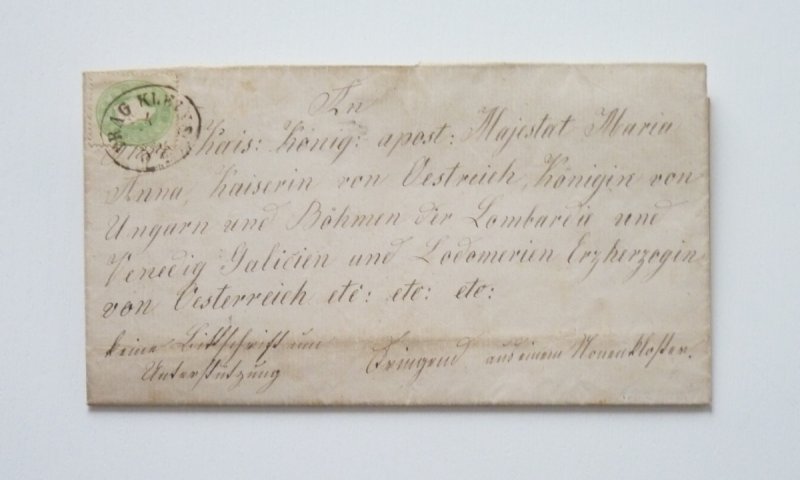 PRAG KLEINS
An
Kais: König: apost: Majestat Maria
Anna, Kaiserin von Oestreich, Königin von
Ungarn und Böhmen der Lombardie und
Venedig Galicien und Lodomerien Erzherzogin
von Oesterreich etc: etc: etc:
keine Bittschrift um
Unterstützung
Dringend aus einem Nonenkloster.